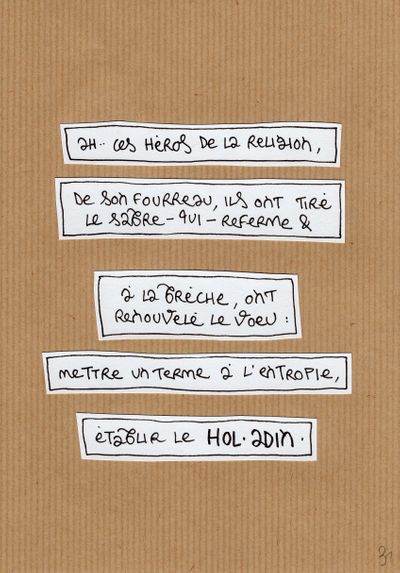 AH.. CES HÉROS DE LA RELIGION,
DE SON FOURREAU, ILS ONT TIRÉ
LE SABRE-QUI-REFERME &
À LA BRÈCHE, ONT
RENOUVELÉ LE VOEU :
METTRE UN TERME À L'ENTROPIE,
ÉTABLIR LE HOL·ADIN·
31